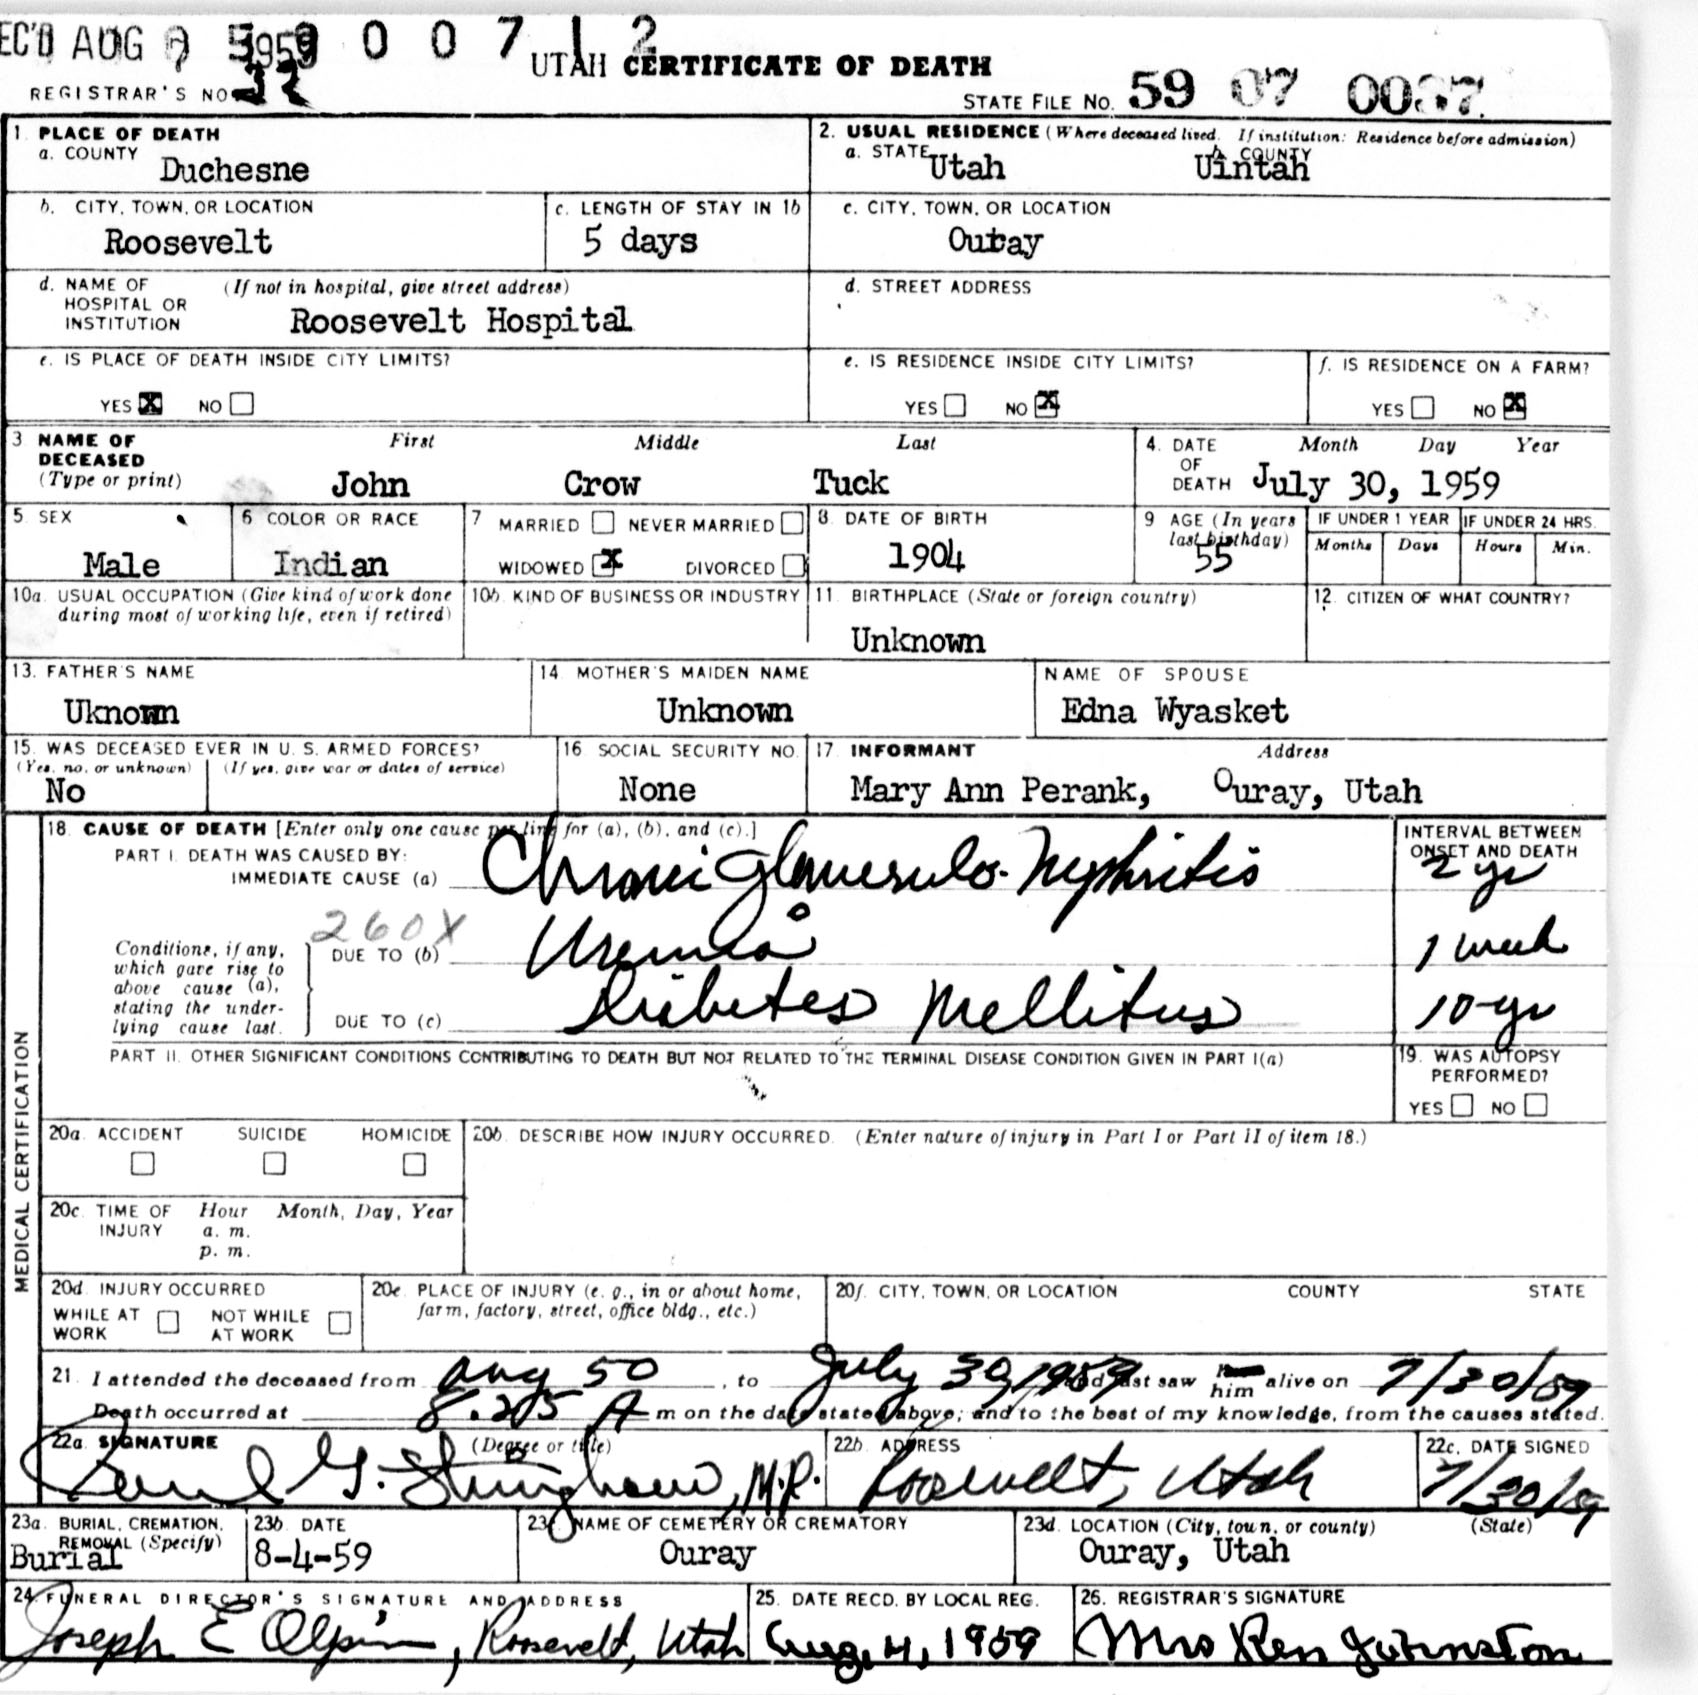 EC'D AUG 5 1959 0 0 7 1 2
UTAH CERTIFICATE OF DEATH
REGISTRAR'S NO. 32
STATE FILE No. 59 07 0037.
1. PLACE OF DEATH
a. COUNTY Duchesne
2. USUAL RESIDENCE (Where deceased lived. If institution: Residence before admission)
a. STATE Utah b. COUNTY Uintah
b. CITY, TOWN, OR LOCATION Roosevelt
c. LENGTH OF STAY IN 1b 5 days
c. CITY, TOWN, OR LOCATION Ouray
d. NAME OF HOSPITAL OR INSTITUTION (If not in hospital, give street address) Roosevelt Hospital
d. STREET ADDRESS
e. IS PLACE OF DEATH INSIDE CITY LIMITS?
YES X NO
e. IS RESIDENCE INSIDE CITY LIMITS?
YES NO X
f. IS RESIDENCE ON A FARM?
YES NO X
3 NAME OF DECEASED (Type or print)
First Middle Last
John Crow Tuck
4. DATE OF DEATH Month Day Year
July 30, 1959
5. SEX Male
6 COLOR OR RACE Indian
7 MARRIED NEVER MARRIED
WIDOWED X DIVORCED
8. DATE OF BIRTH 1904
9 AGE (In years last birthday) 55
IF UNDER 1 YEAR Months Days
IF UNDER 24 HRS. Hours Min.
10a. USUAL OCCUPATION (Give kind of work done during most of working life, even if retired)
10b. KIND OF BUSINESS OR INDUSTRY
11. BIRTHPLACE (State or foreign country) Unknown
12. CITIZEN OF WHAT COUNTRY?
13. FATHER'S NAME Uknown
14. MOTHER'S MAIDEN NAME Unknown
NAME OF SPOUSE Edna Wyasket
15. WAS DECEASED EVER IN U. S. ARMED FORCES?
(Yes, no, or unknown) (If yes, give war or dates of service)
No
16 SOCIAL SECURITY NO. None
17. INFORMANT Address
Mary Ann Perank, Ouray, Utah
MEDICAL CERTIFICATION
18. CAUSE OF DEATH [Enter only one cause per line for (a), (b), and (c).]
INTERVAL BETWEEN ONSET AND DEATH
PART I. DEATH WAS CAUSED BY:
IMMEDIATE CAUSE (a) Chronic Glomerulo-Nephritis 2 yr
260X
Conditions, if any, which gave rise to above cause (a), stating the underlying cause last.
DUE TO (b) Uremia 1 week
DUE TO (c) Diabetes Mellitus 10-yr
PART II. OTHER SIGNIFICANT CONDITIONS CONTRIBUTING TO DEATH BUT NOT RELATED TO THE TERMINAL DISEASE CONDITION GIVEN IN PART I(a)
19. WAS AUTOPSY PERFORMED?
YES NO
20a. ACCIDENT SUICIDE HOMICIDE
20b. DESCRIBE HOW INJURY OCCURRED. (Enter nature of injury in Part I or Part II of item 18.)
20c. TIME OF INJURY Hour Month, Day, Year
a. m.
p. m.
20d. INJURY OCCURRED
WHILE AT WORK NOT WHILE AT WORK
20e. PLACE OF INJURY (e. g., in or about home, farm, factory, street, office bldg., etc.)
20f. CITY, TOWN, OR LOCATION COUNTY STATE
21. I attended the deceased from Aug 50, to July 30, 1959 and last saw him alive on 7/30/59
Death occurred at 8.25 A m on the date stated above; and to the best of my knowledge, from the causes stated.
22a. SIGNATURE (Degree or title)
Paul G. Stringham, M.D.
22b. ADDRESS Roosevelt, Utah
22c. DATE SIGNED 7/30/59
23a. BURIAL, CREMATION, REMOVAL (Specify) Burial
23b. DATE 8-4-59
23c. NAME OF CEMETERY OR CREMATORY Ouray
23d. LOCATION (City, town, or county) (State) Ouray, Utah
24. FUNERAL DIRECTOR'S SIGNATURE AND ADDRESS
Joseph E Olpin, Roosevelt, Utah
25. DATE RECD. BY LOCAL REG. Aug. 4, 1959
26. REGISTRAR'S SIGNATURE
Mrs Ken Johnston